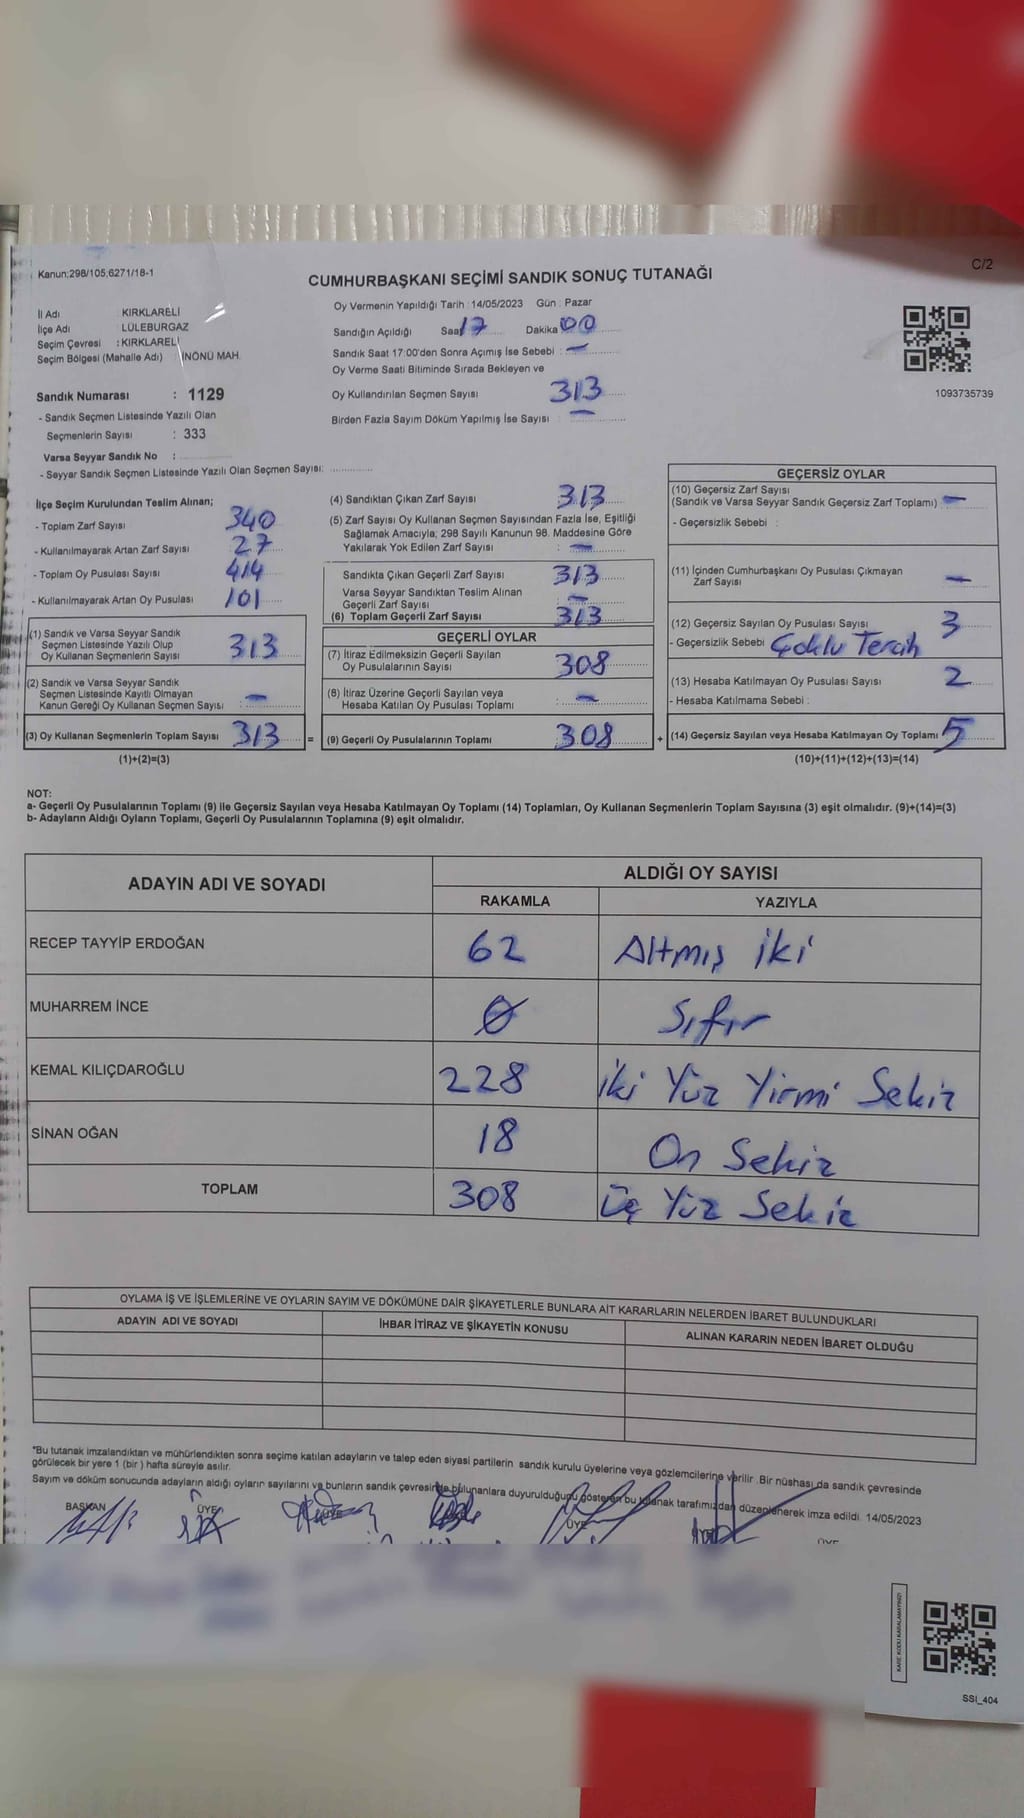 Kanun:298/105,6271/18-1
C/2
CUMHURBAŞKANI SEÇİMİ SANDIK SONUÇ TUTANAĞI
İl Adı : KIRKLARELİ
İlçe Adı : LÜLEBURGAZ
Seçim Çevresi : KIRKLARELİ
Seçim Bölgesi (Mahalle Adı) : İNÖNÜ MAH.
Oy Vermenin Yapıldığı Tarih : 14/05/2023 Gün : Pazar
Sandığın Açıldığı Saat 17 Dakika 00
Sandık Saat 17:00'den Sonra Açımış İse Sebebi : —
Oy Verme Saati Bitiminde Sırada Bekleyen ve
Oy Kullandırılan Seçmen Sayısı 313
Birden Fazla Sayım Döküm Yapılmış İse Sayısı : —
1093735739
Sandık Numarası : 1129
- Sandık Seçmen Listesinde Yazılı Olan
Seçmenlerin Sayısı : 333
Varsa Seyyar Sandık No :
- Seyyar Sandık Seçmen Listesinde Yazılı Olan Seçmen Sayısı:
İlçe Seçim Kurulundan Teslim Alınan;
- Toplam Zarf Sayısı 340
- Kullanılmayarak Artan Zarf Sayısı 27
- Toplam Oy Pusulası Sayısı 414
- Kullanılmayarak Artan Oy Pusulası 101
(1) Sandık ve Varsa Seyyar Sandık
Seçmen Listesinde Yazılı Olup
Oy Kullanan Seçmenlerin Sayısı 313
(2) Sandık ve Varsa Seyyar Sandık
Seçmen Listesinde Kayıtlı Olmayan
Kanun Gereği Oy Kullanan Seçmen Sayısı : —
(3) Oy Kullanan Seçmenlerin Toplam Sayısı 313 =
(1)+(2)=(3)
(4) Sandıktan Çıkan Zarf Sayısı 313
(5) Zarf Sayısı Oy Kullanan Seçmen Sayısından Fazla İse, Eşitliği
Sağlamak Amacıyla; 298 Sayılı Kanunun 98. Maddesine Göre
Yakılarak Yok Edilen Zarf Sayısı : —
Sandıkta Çıkan Geçerli Zarf Sayısı 313
Varsa Seyyar Sandıktan Teslim Alınan
Geçerli Zarf Sayısı —
(6) Toplam Geçerli Zarf Sayısı 313
GEÇERLİ OYLAR
(7) İtiraz Edilmeksizin Geçerli Sayılan
Oy Pusulalarının Sayısı 308
(8) İtiraz Üzerine Geçerli Sayılan veya
Hesaba Katılan Oy Pusulası Toplamı : —
(9) Geçerli Oy Pusulalarının Toplamı 308 +
GEÇERSİZ OYLAR
(10) Geçersiz Zarf Sayısı
(Sandık ve Varsa Seyyar Sandık Geçersiz Zarf Toplamı) —
- Geçersizlik Sebebi :
(11) İçinden Cumhurbaşkanı Oy Pusulası Çıkmayan
Zarf Sayısı —
(12) Geçersiz Sayılan Oy Pusulası Sayısı 3
- Geçersizlik Sebebi Çoklu Tercih
(13) Hesaba Katılmayan Oy Pusulası Sayısı 2
- Hesaba Katılmama Sebebi :
(14) Geçersiz Sayılan veya Hesaba Katılmayan Oy Toplamı 5
(10)+(11)+(12)+(13)=(14)
NOT:
a- Geçerli Oy Pusulalarının Toplamı (9) ile Geçersiz Sayılan veya Hesaba Katılmayan Oy Toplamı (14) Toplamları, Oy Kullanan Seçmenlerin Toplam Sayısına (3) eşit olmalıdır. (9)+(14)=(3)
b- Adayların Aldığı Oyların Toplamı, Geçerli Oy Pusulalarının Toplamına (9) eşit olmalıdır.
ADAYIN ADI VE SOYADI ALDIĞI OY SAYISI
RAKAMLA YAZIYLA
RECEP TAYYİP ERDOĞAN 62 Altmış iki
MUHARREM İNCE 0 Sıfır
KEMAL KILIÇDAROĞLU 228 İki Yüz Yirmi Sekiz
SİNAN OĞAN 18 On Sekiz
TOPLAM 308 Üç Yüz Sekiz
OYLAMA İŞ VE İŞLEMLERİNE VE OYLARIN SAYIM VE DÖKÜMÜNE DAİR ŞİKAYETLERLE BUNLARA AİT KARARLARIN NELERDEN İBARET BULUNDUKLARI
ADAYIN ADI VE SOYADI İHBAR İTİRAZ VE ŞİKAYETİN KONUSU ALINAN KARARIN NEDEN İBARET OLDUĞU
*Bu tutanak imzalandıktan ve mühürlendikten sonra seçime katılan adayların ve talep eden siyasi partilerin sandık kurulu üyelerine veya gözlemcilerine verilir. Bir nüshası da sandık çevresinde
görülecek bir yere 1 (bir) hafta süreyle asılır.
Sayım ve döküm sonucunda adayların aldığı oyların sayılarını ve bunların sandık çevresinde bulunanlara duyurulduğunu gösteren bu tutanak tarafımızdan düzenlenerek imza edildi. 14/05/2023
BAŞKAN ÜYE ÜYE ÜYE
KARE KODU KARALAMAYINIZ!
SSI_404